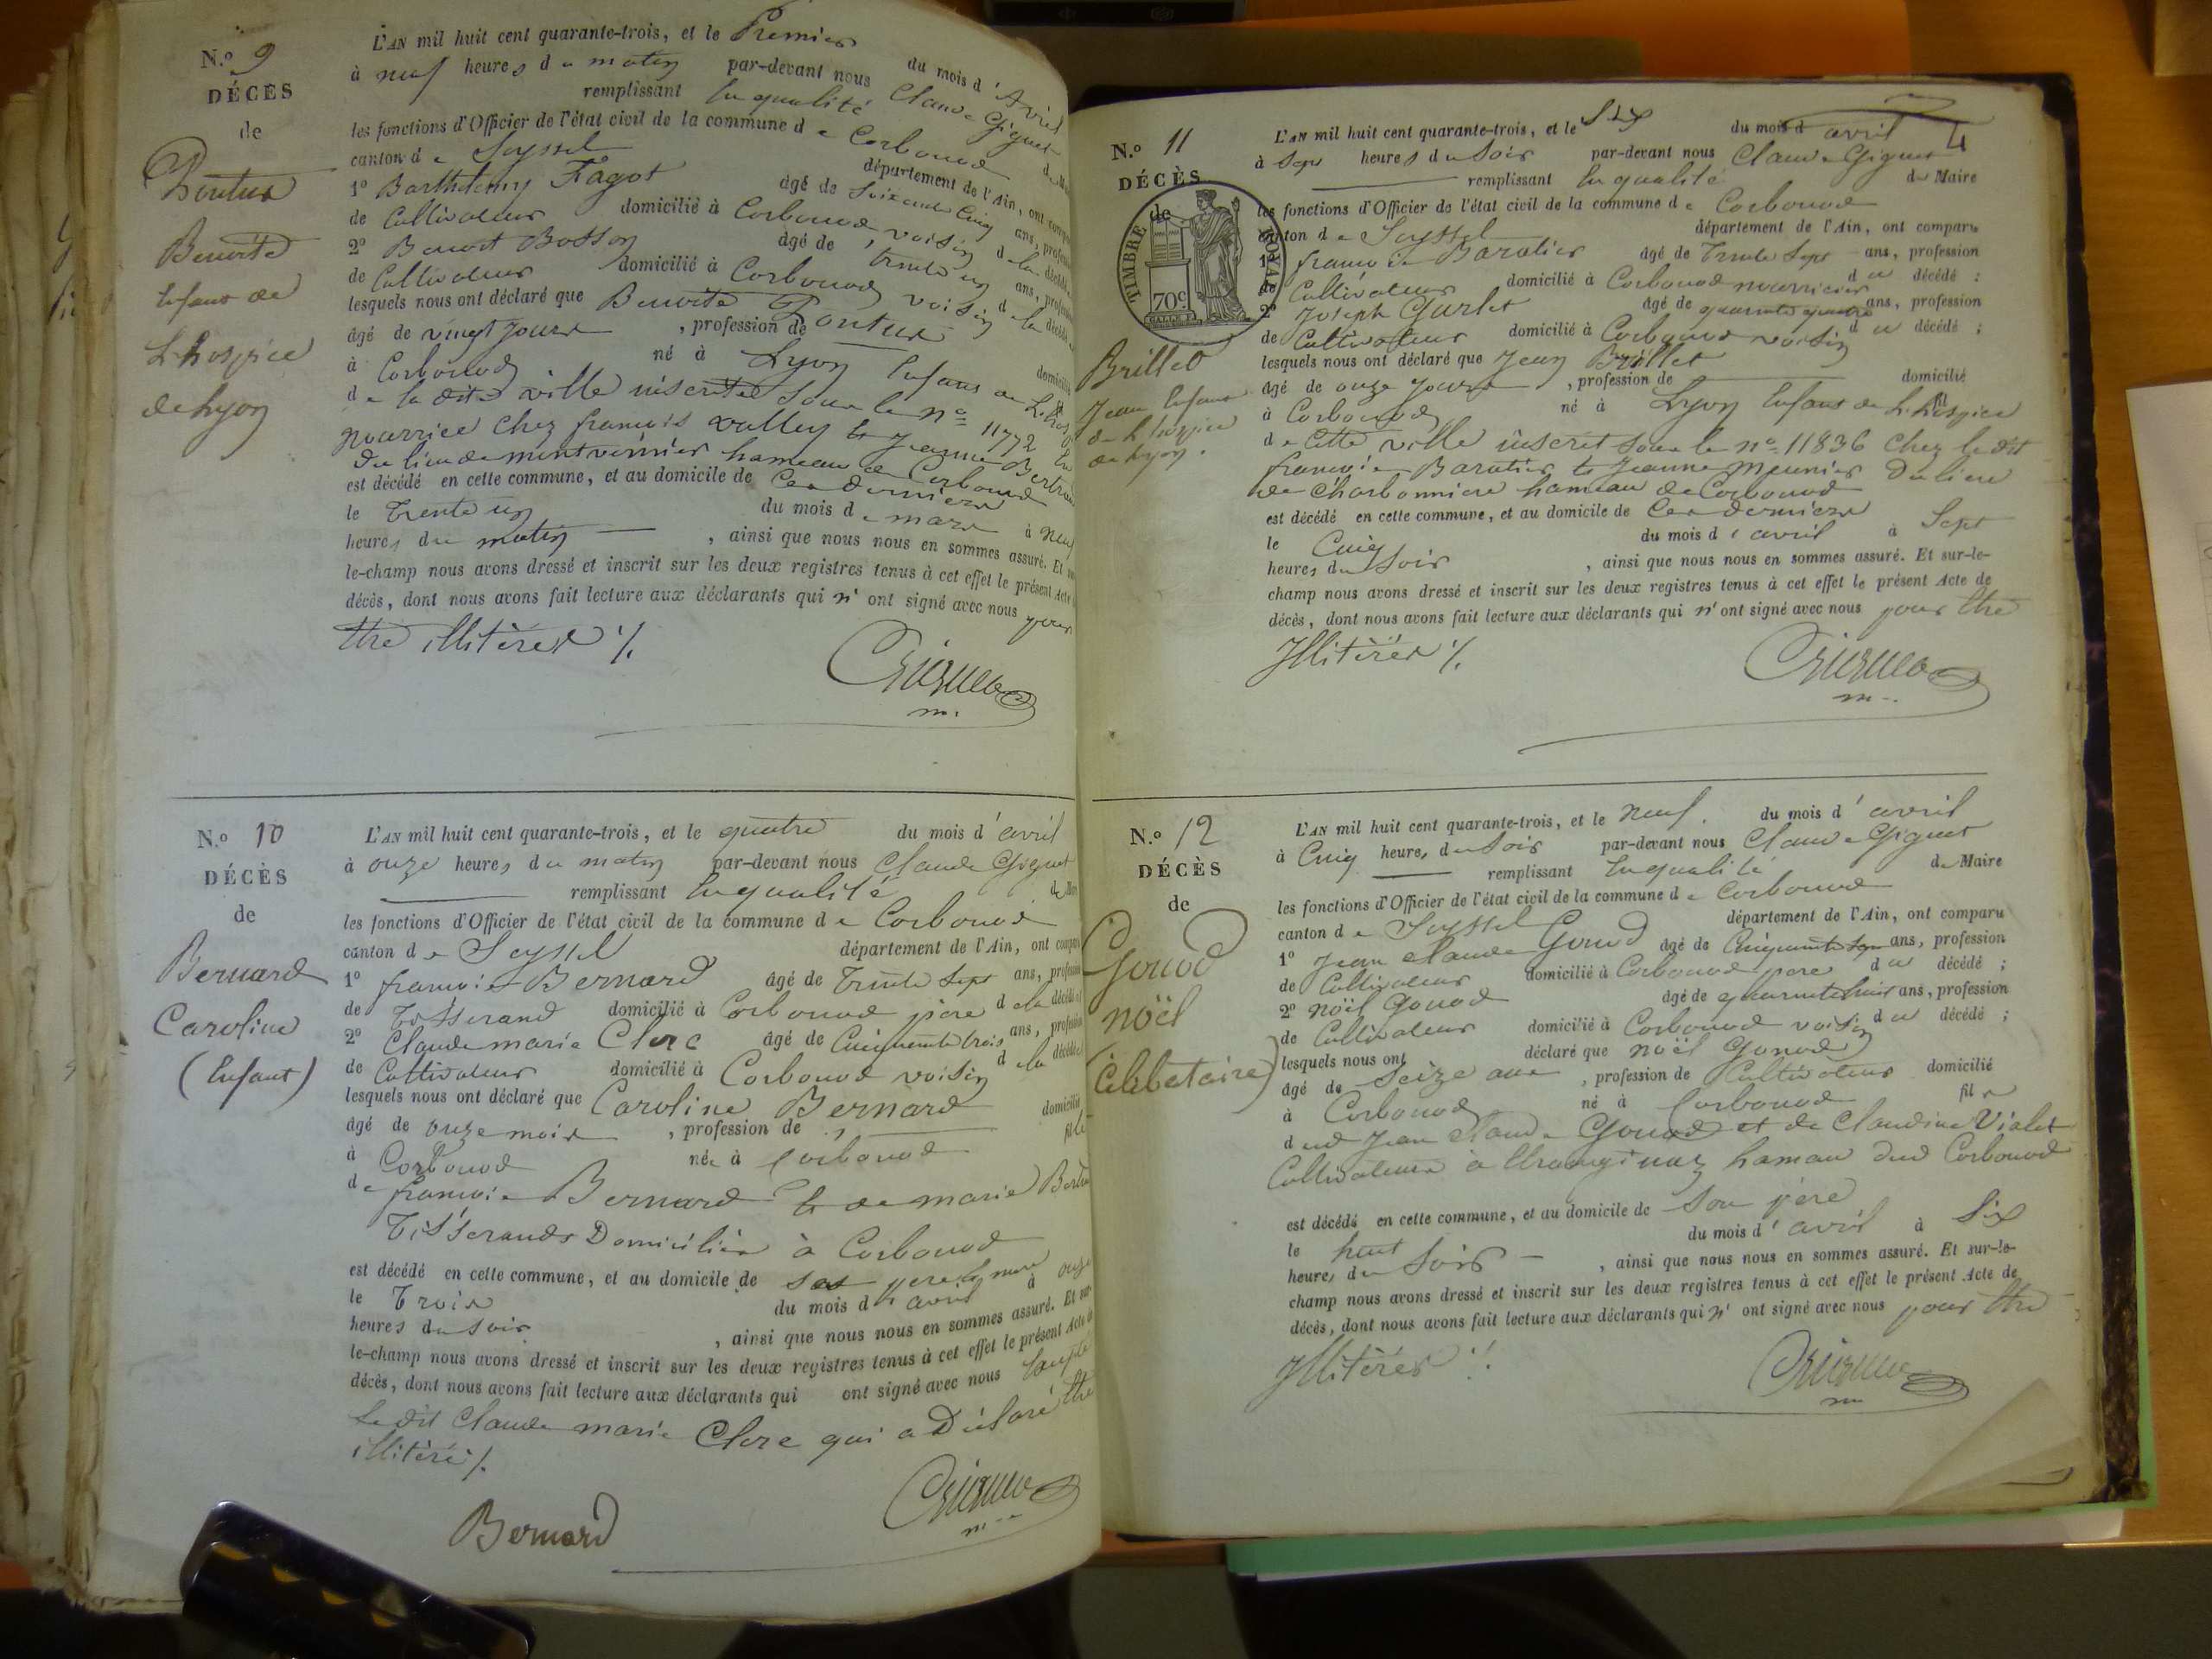 N.º 9
DÉCÈS
de
Pontus
Benoite
Enfant de
L'hospice
de Lyon
L'AN mil huit cent quarante-trois, et le Premier du mois d'Avril
à neuf heures du matin par-devant nous Claude Giguet
remplissant En qualité de
les fonctions d'Officier de l'état civil de la commune de Corbonod
canton de Seyssel département de l'Ain, ont
1º Barthélemy Fagot âgé de Soixante Cinq ans,
de Cultivateur domicilié à Corbonod voisin de la
2º Benoit Bosson âgé de trente un ans,
de Cultivateur domicilié à Corbonod voisin de la
lesquels nous ont déclaré que Benoite Pontus
âgé de vingt jours, profession de
à Corbonod né à Lyon Enfant de
de la dite ville inscrite Sous le nº 11772 En
nourrice chez françois valley et Jeanne
du lieu de montvernier hameau de Corbonod
est décédé en cette commune, et au domicile de Ces derniers
le Trente un du mois de mars à neuf
heures du matin, ainsi que nous nous en sommes assuré. Et
le-champ nous avons dressé et inscrit sur les deux registres tenus à cet effet le présent Acte
décès, dont nous avons fait lecture aux déclarants qui n'ont signé avec nous pour
être illitérés ./.
Giguet
m.
N.º 10
DÉCÈS
de
Bernard
Caroline
(Enfant)
L'AN mil huit cent quarante-trois, et le quatre du mois d'avril
à onze heures du matin par-devant nous Claude Giguet
remplissant En qualité de
les fonctions d'Officier de l'état civil de la commune de Corbonod
canton de Seyssel département de l'Ain, ont
1º françois Bernard âgé de Trente Sept ans,
de Tisserand domicilié à Corbonod père de la
2º Claude marie Clerc âgé de Cinquante trois ans,
de Cultivateur domicilié à Corbonod voisin de la
lesquels nous ont déclaré que Caroline Bernard
âgé de onze mois, profession de domicilié
à Corbonod née à Corbonod fille
de françois Bernard et de marie
Tisserands Domiciliés à Corbonod
est décédé en cette commune, et au domicile de Ses père et mère
le Trois du mois d'avril à onze
heures du Soir, ainsi que nous nous en sommes assuré. Et
le-champ nous avons dressé et inscrit sur les deux registres tenus à cet effet le présent Acte
décès, dont nous avons fait lecture aux déclarants qui ont signé avec nous
Le dit Claude marie Clerc qui a Déclaré être
illitéré ./.
Bernard
Giguet
m.
4
N.º 11
DÉCÈS
de
TIMBRE ROYAL
70c
Brillet
Jean Enfant
de L'hospice
de Lyon.
L'AN mil huit cent quarante-trois, et le Six du mois d'avril
à Sept heures du Soir par-devant nous Claude Giguet
remplissant En qualité de Maire
les fonctions d'Officier de l'état civil de la commune de Corbonod
canton de Seyssel département de l'Ain, ont comparu
1º françois Baratier âgé de Trente Sept ans, profession
de Cultivateur domicilié à Corbonod nourricier du décédé ;
2º Joseph Gurlet âgé de quarante quatre ans, profession
de Cultivateur domicilié à Corbonod voisin du décédé ;
lesquels nous ont déclaré que Jean Brillet
âgé de onze jours, profession de domicilié
à Corbonod né à Lyon Enfant de L'hospice
de Cette ville inscrit Sous le nº 11836 chez le dit
françois Baratier et Jeanne Meunier Du lieu
de Charbonniere hameau de Corbonod
est décédé en cette commune, et au domicile de Ces derniers
le Cinq du mois d'avril à Sept
heures du Soir, ainsi que nous nous en sommes assuré. Et sur-le-
champ nous avons dressé et inscrit sur les deux registres tenus à cet effet le présent Acte de
décès, dont nous avons fait lecture aux déclarants qui n'ont signé avec nous pour être
Illitérés ./.
Giguet
m.
N.º 12
DÉCÈS
de
Gonod
noël
(Célebataire)
L'AN mil huit cent quarante-trois, et le neuf. du mois d'avril
à Cinq heures du Soir par-devant nous Claude Giguet
remplissant En qualité de Maire
les fonctions d'Officier de l'état civil de la commune de Corbonod
canton de Seyssel département de l'Ain, ont comparu
1º Jean Claude Gonod âgé de Cinquante Sept ans, profession
de Cultivateur domicilié à Corbonod père du décédé ;
2º noël Gonod âgé de quarante huit ans, profession
de Cultivateur domicilié à Corbonod voisin du décédé ;
lesquels nous ont déclaré que noël Gonod
âgé de Seize ans, profession de Cultivateur domicilié
à Corbonod né à Corbonod fils
dud Jean Claude Gonod et de Claudine Vialet
Cultivateurs à hameau dud Corbonod
est décédé en cette commune, et au domicile de Son père
le huit du mois d'avril à Six
heures du Soir, ainsi que nous nous en sommes assuré. Et sur-le-
champ nous avons dressé et inscrit sur les deux registres tenus à cet effet le présent Acte de
décès, dont nous avons fait lecture aux déclarants qui n'ont signé avec nous pour être
Illitérés ./.
Giguet
m